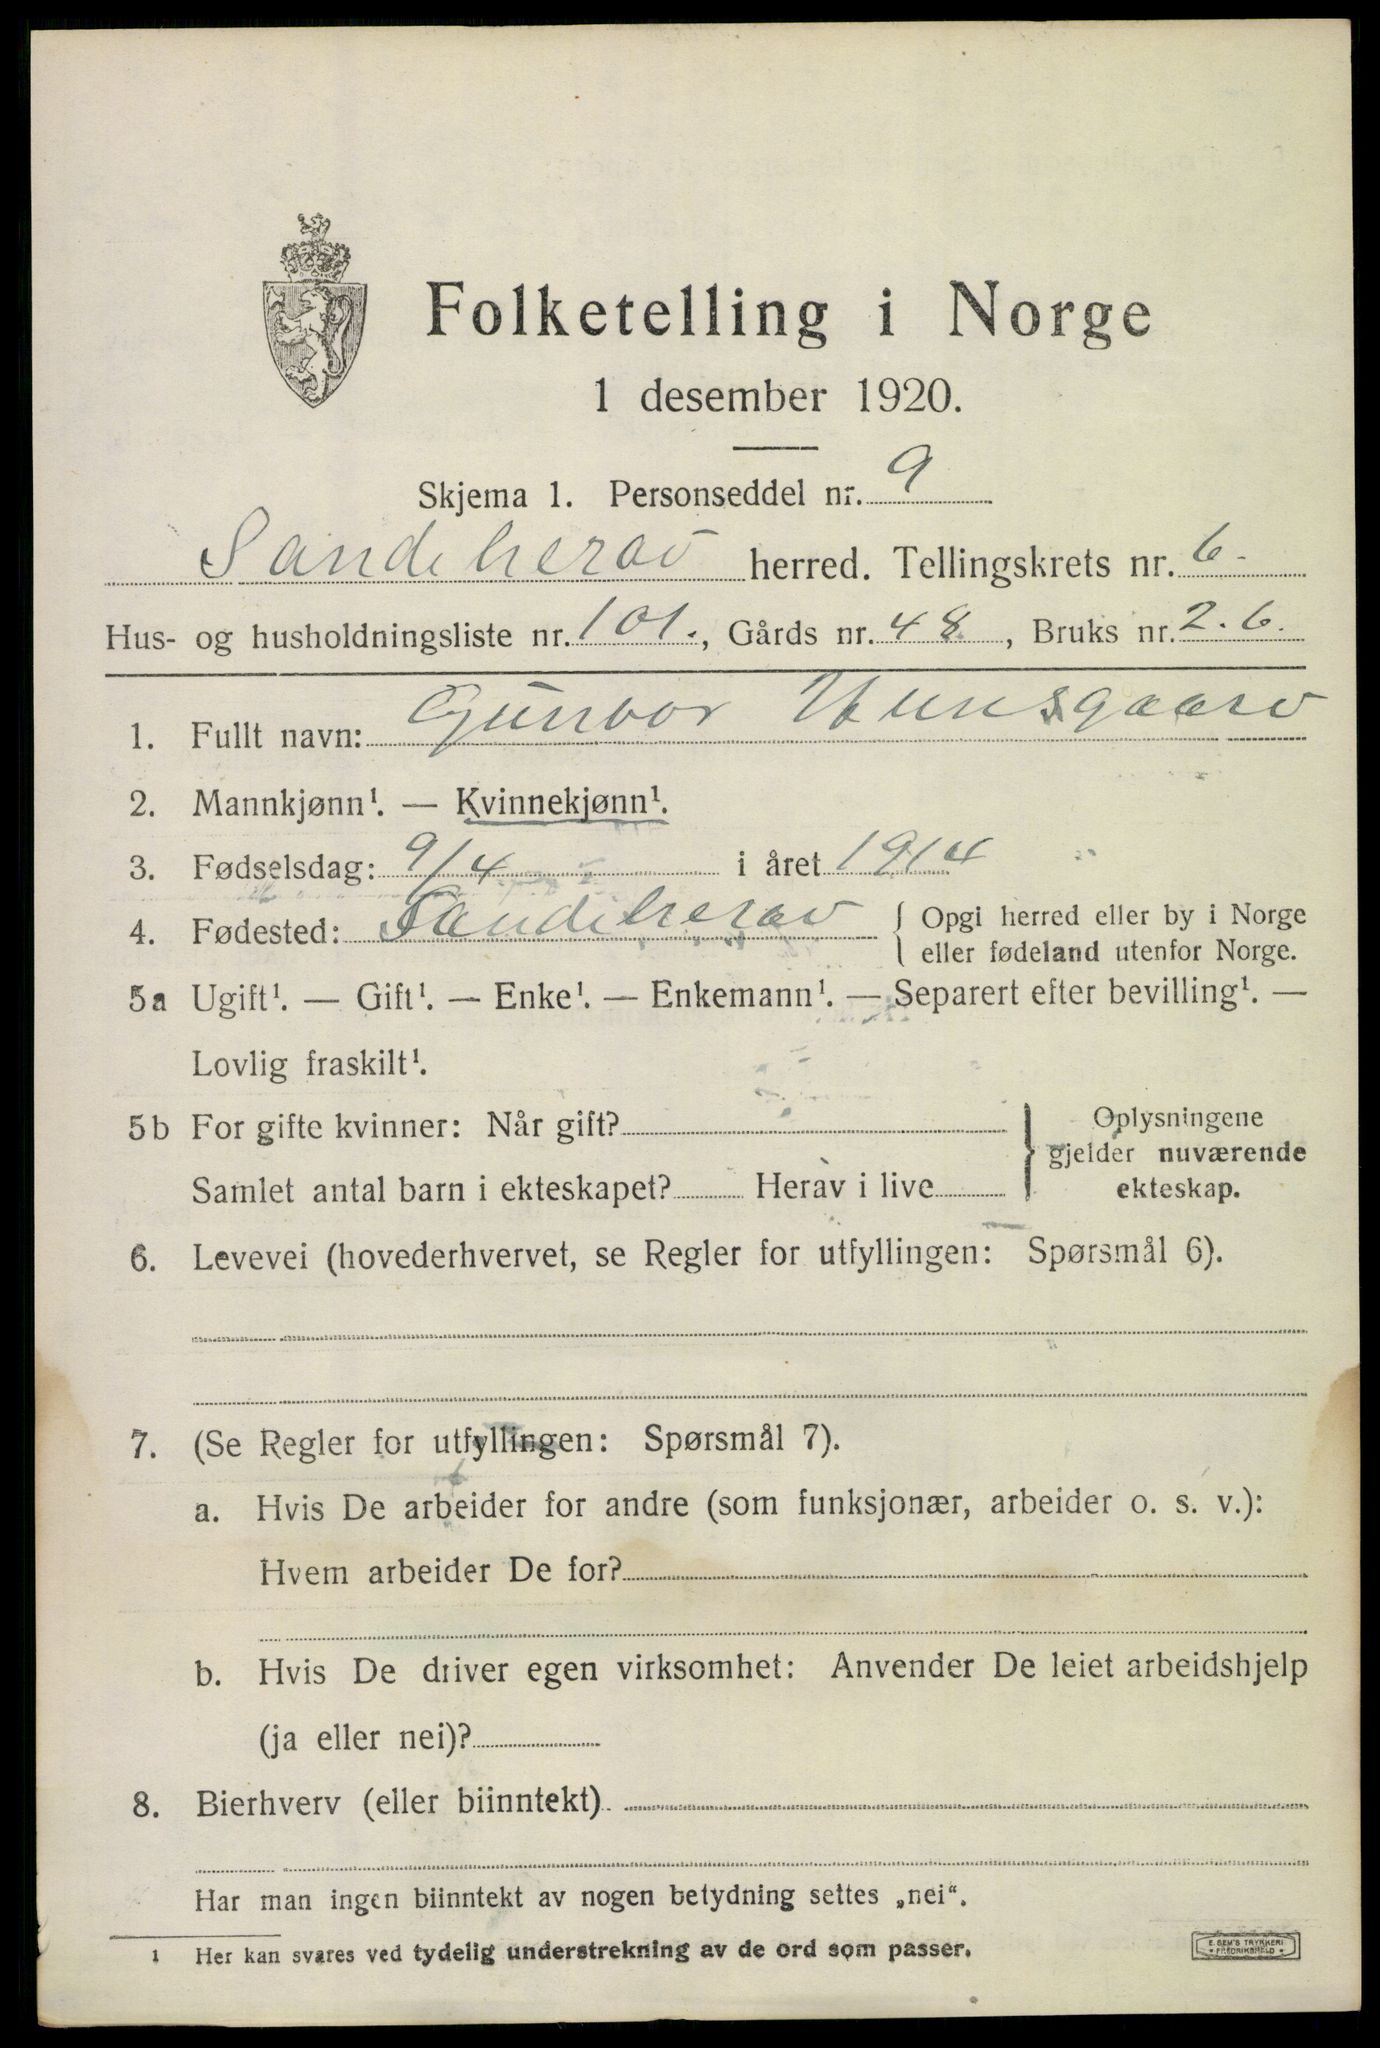 Folketelling i Norge
1 desember 1920.
Skjema 1. Personseddel nr. 9
Sandeherad herred. Tellingskrets nr. 6.
Hus- og husholdningsliste nr. 101., Gårds nr. 48, Bruks nr. 2.6.
1. Fullt navn: Gunvor Hunsgaard
2. Mannkjønn¹. — Kvinnekjønn¹.
3. Fødselsdag: 9/4 i året 1914
4. Fødested: Sandeherad { Opgi herred eller by i Norge
eller fødeland utenfor Norge.
5a Ugift¹. — Gift¹. — Enke¹. — Enkemann¹. — Separert efter bevilling¹. —
Lovlig fraskilt¹.
5b For gifte kvinner: Når gift?
Samlet antal barn i ekteskapet? Herav i live
} Oplysningene
gjelder nuværende
ekteskap.
6. Levevei (hovederhvervet, se Regler for utfyllingen: Spørsmål 6).
7. (Se Regler for utfyllingen: Spørsmål 7).
a. Hvis De arbeider for andre (som funksjonær, arbeider o. s. v.):
Hvem arbeider De for?
b. Hvis De driver egen virksomhet: Anvender De leiet arbeidshjelp
(ja eller nei)?
8. Bierhverv (eller biinntekt)
Har man ingen biinntekt av nogen betydning settes „nei“.
1 Her kan svares ved tydelig understrekning av de ord som passer.
E. SEM'S TRYKKERI
FREDRIKSHALD